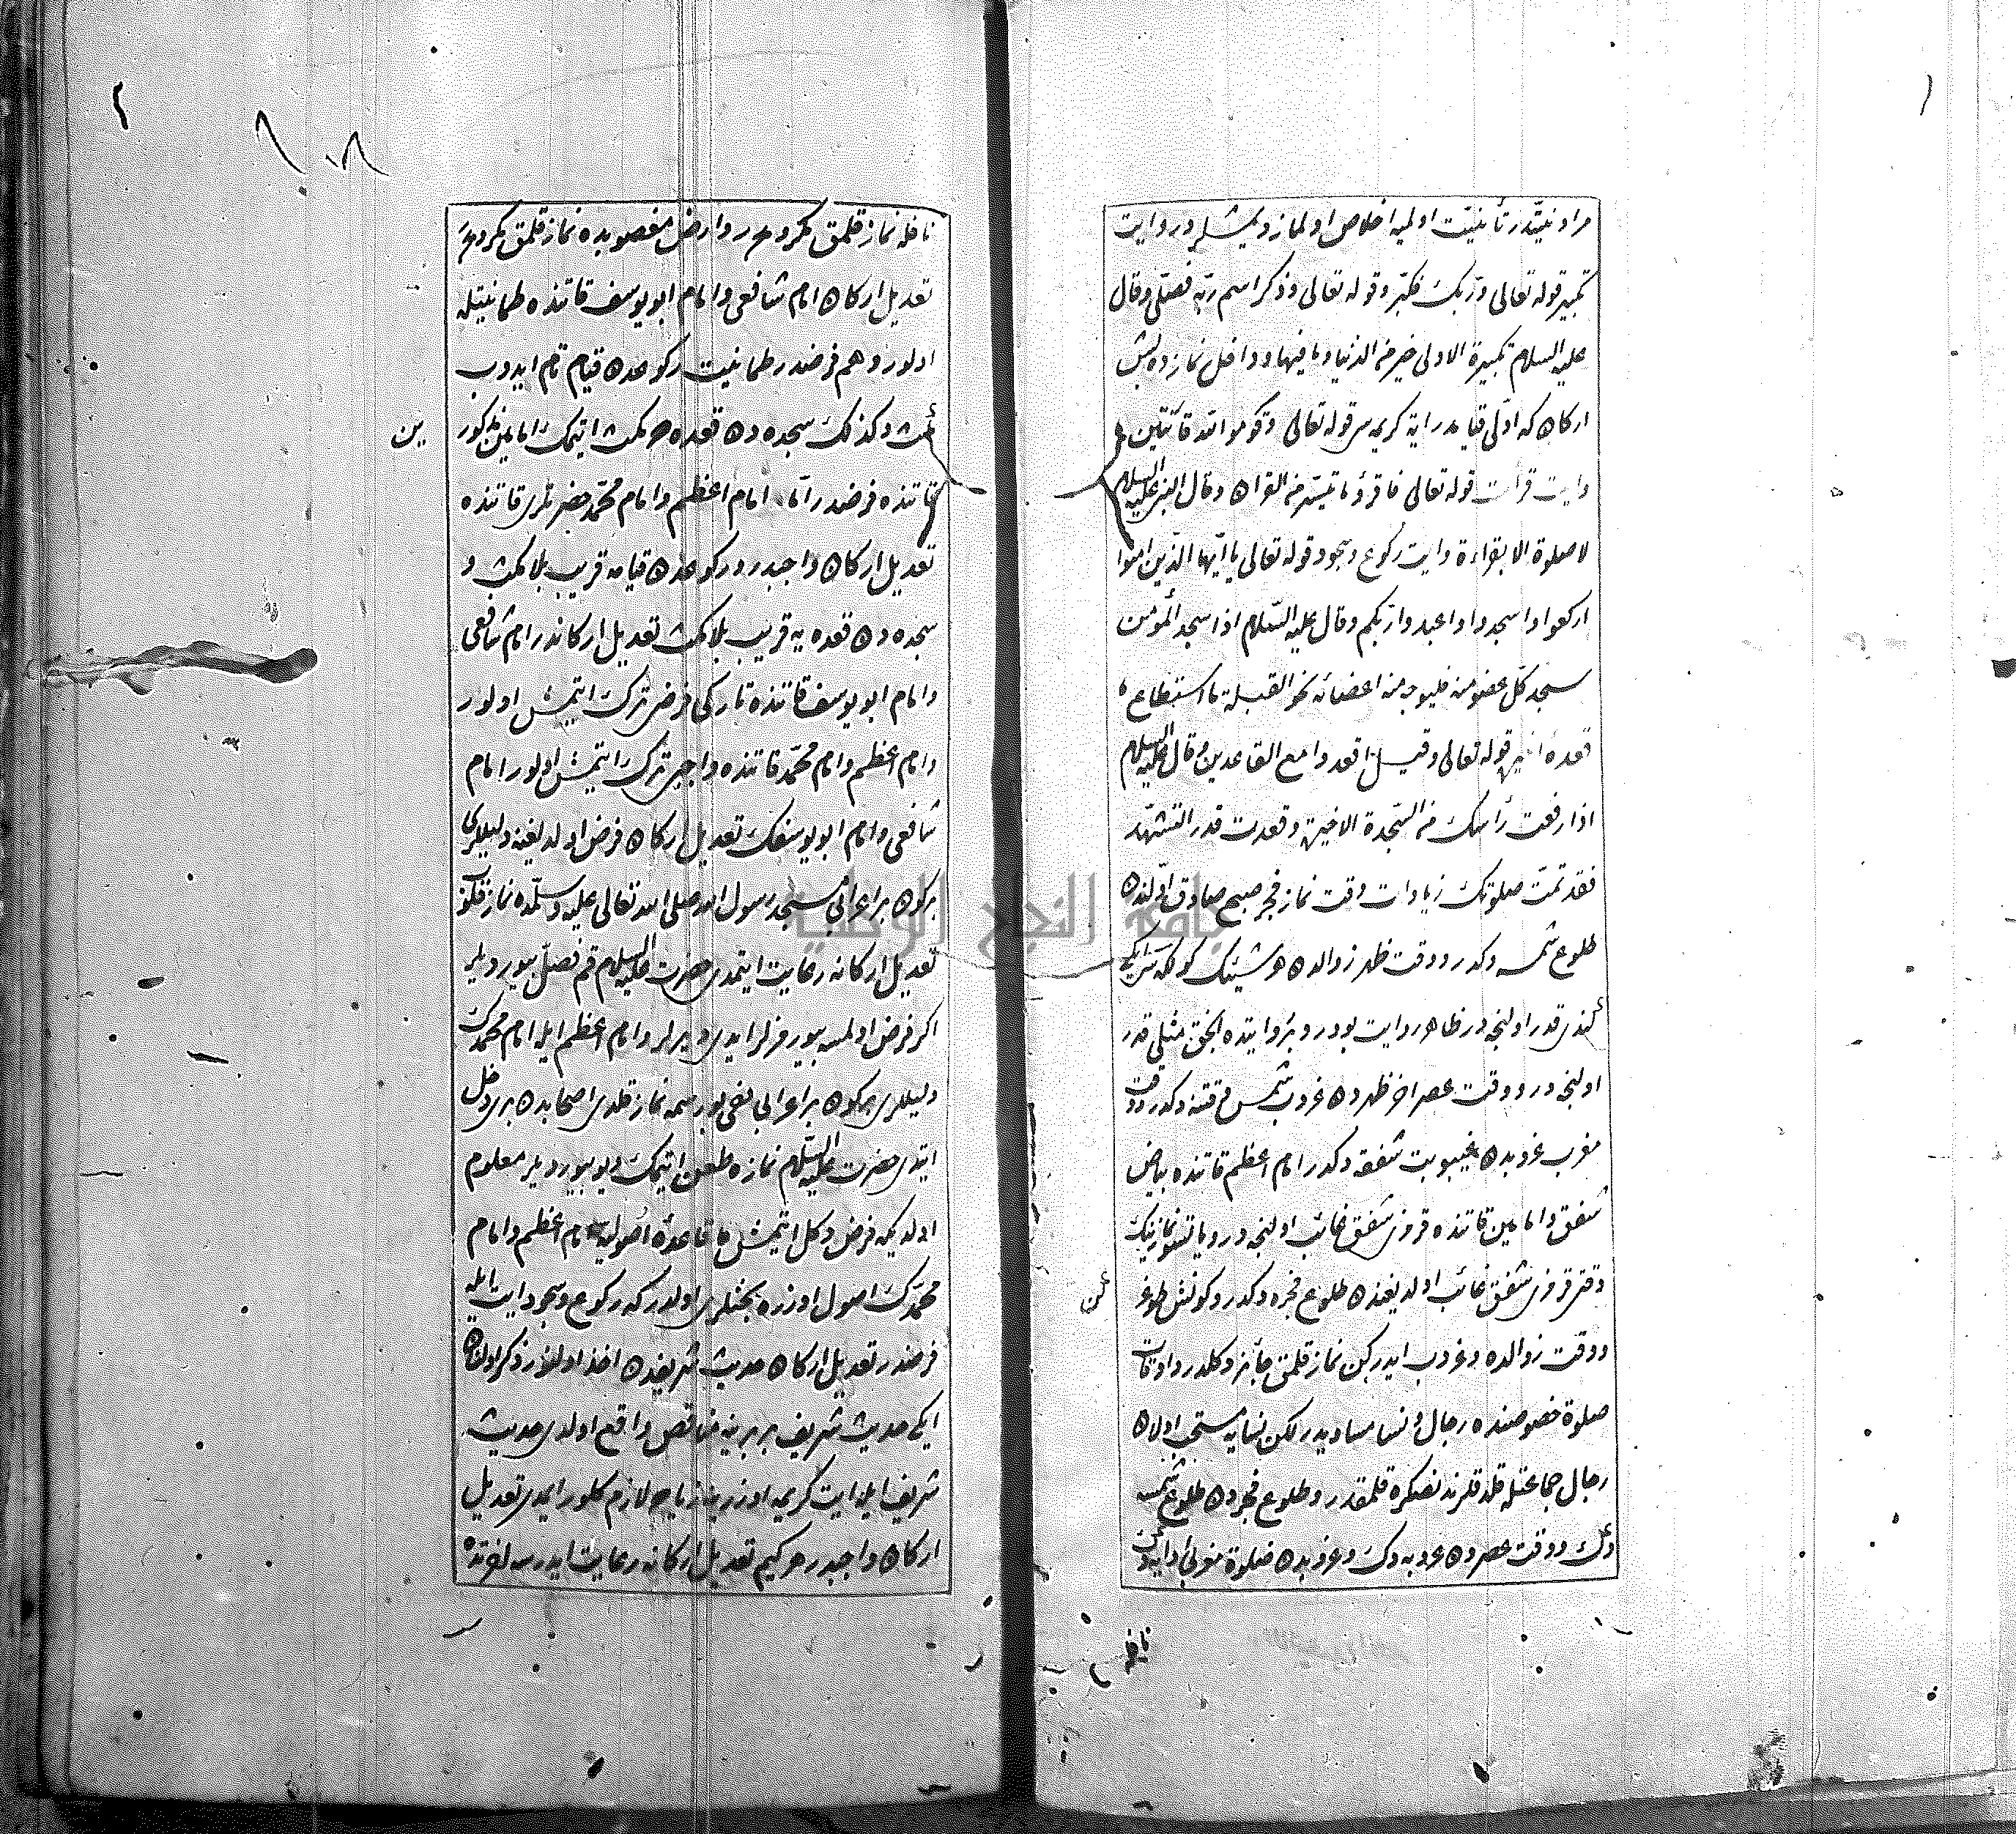 مراد نیتدر تأ نیت اولمیه اخلاص اولماز دیمشلر در وایت
تکبیر قوله تعالی وربك فکبر وقوله تعالی وذکر اسم ربه فصلی وقال
علیه السلام تکبیرة الاولی خیر من الدنیا وما فیها وداخل نمازده بش
ارکان که اولی قیامدر ایة کریمه سر قوله تعالی وقوموا لله قانتین
وایت قرأت قوله تعالی فاقرؤا ما تیسر من القران وقال النبی علیه السلام
لا صلوة الا بقراءة وایت رکوع وسجود قوله تعالی یا ایها الذین امنوا
ارکعوا واسجدوا واعبدوا ربکم وقال علیه السلام اذا سجد المؤمن
سجد کل عضو منه فلیوجه من اعضائه نحو القبلة ما استطاع
قعدهٔ اخیره قوله تعالی وقیل اقعدوا مع القاعدین وقال علیه السلام
اذا رفعت رأسك من السجدة الاخیرة وقعدت قدر التشهد
فقد تمت صلوتك زیادات وقت نماز فجر صبح صادق اولندن
طلوع شمسه دکدر ووقت ظهر زوالدن هر شیئك کولکه سی ایکی
کندی قدر اولنجه در ظاهر روایت بودر وبر روایتده انجق مثلی قدر
اولنجه در ووقت عصر اخر ظهردن غروب شمس وقتنه دکدر ووقت
مغرب غروبدن غیبوبت شفقه دکدر امام اعظم قاتنده بیاض
شفق وامامین قاتنده قرمزی شفق غائب اولنجه در ویاتسو نمازینك
وقتی قرمزی شفق غائب اولدیغندن طلوع فجره دکدر وکونش طوغر
ووقت زوالده وغروب ایدرکن نماز قلمق جائز دکلدر واوقات
صلوة خصوصنده رجال ونسا مساویدر لکن نسایه مستحب اولان
رجال جماعتله قلدقلرندنصکره قلمقدر وطلوع فجردن طلوع شمسه
دك ووقت عصردن غروبه دك وغروبدن صلوة مغربی
نافله
نافله نماز قلمق مکروهدر وارض مغصوبده نماز قلمق مکروهدر
تعدیل ارکان امام شافعی وامام ابو یوسف قاتنده طمانیتله
اولور وهم فرضدر طمانیت رکوعدن قیام تام ایدوب
مکث وکذلك سجده دن قعده مکث ایتمك امامین مذکور
ین
قاتنده فرضدر اما امام اعظم وامام محمد حضرتلری قاتنده
تعدیل ارکان واجبدر ورکوعدن قیامه قریب بلا مکث و
سجده دن قعده یه قریب بلا مکث تعدیل ارکاندر امام شافعی
وامام ابو یوسف قاتنده تارکی فرض ترك ایتمش اولور
وامام اعظم وامام محمد قاتنده واجبی ترك ایتمش اولور امام
شافعی وامام ابو یوسفك تعدیل ارکان فرض اولدیغنه دلیللری
برکون بر اعرابی مسجد رسول الله صلی الله تعالی علیه وسلمده نماز قلوب
تعدیل ارکانه رعایت ایتمدی حضرت علیه السلام قم فصل بیوردیلر
اکر فرض اولمسه بیورمزلر ایدی دیرلر وامام اعظم ایله امام محمدك
دلیللری برکون بر اعرابی نماز قلدی اصحابدن بری دخل
ایتدی حضرت علیه السلام نمازه طعن ایتمك دیو بیوردیلر معلوم
اولدیکه فرض دکل ایتمش قاعدهٔ اصولیه امام اعظم وامام
محمدك اصول اوزره بحثلری اولدرکه رکوع وسجود ایت ایله
فرضدر تعدیل ارکان حدیث شریفدن اخذ اولنور ذکر اولنان
ایکی حدیث شریف بربرینه مناقض واقع اولدی حدیث
شریف ایله ایت کریمه اوزرینه زیاده لازم کلور ایمدی تعدیل
ارکان واجبدر هرکیم تعدیل ارکانه رعایت ایدرسه اخرتده
جامعة النجاح الوطنية